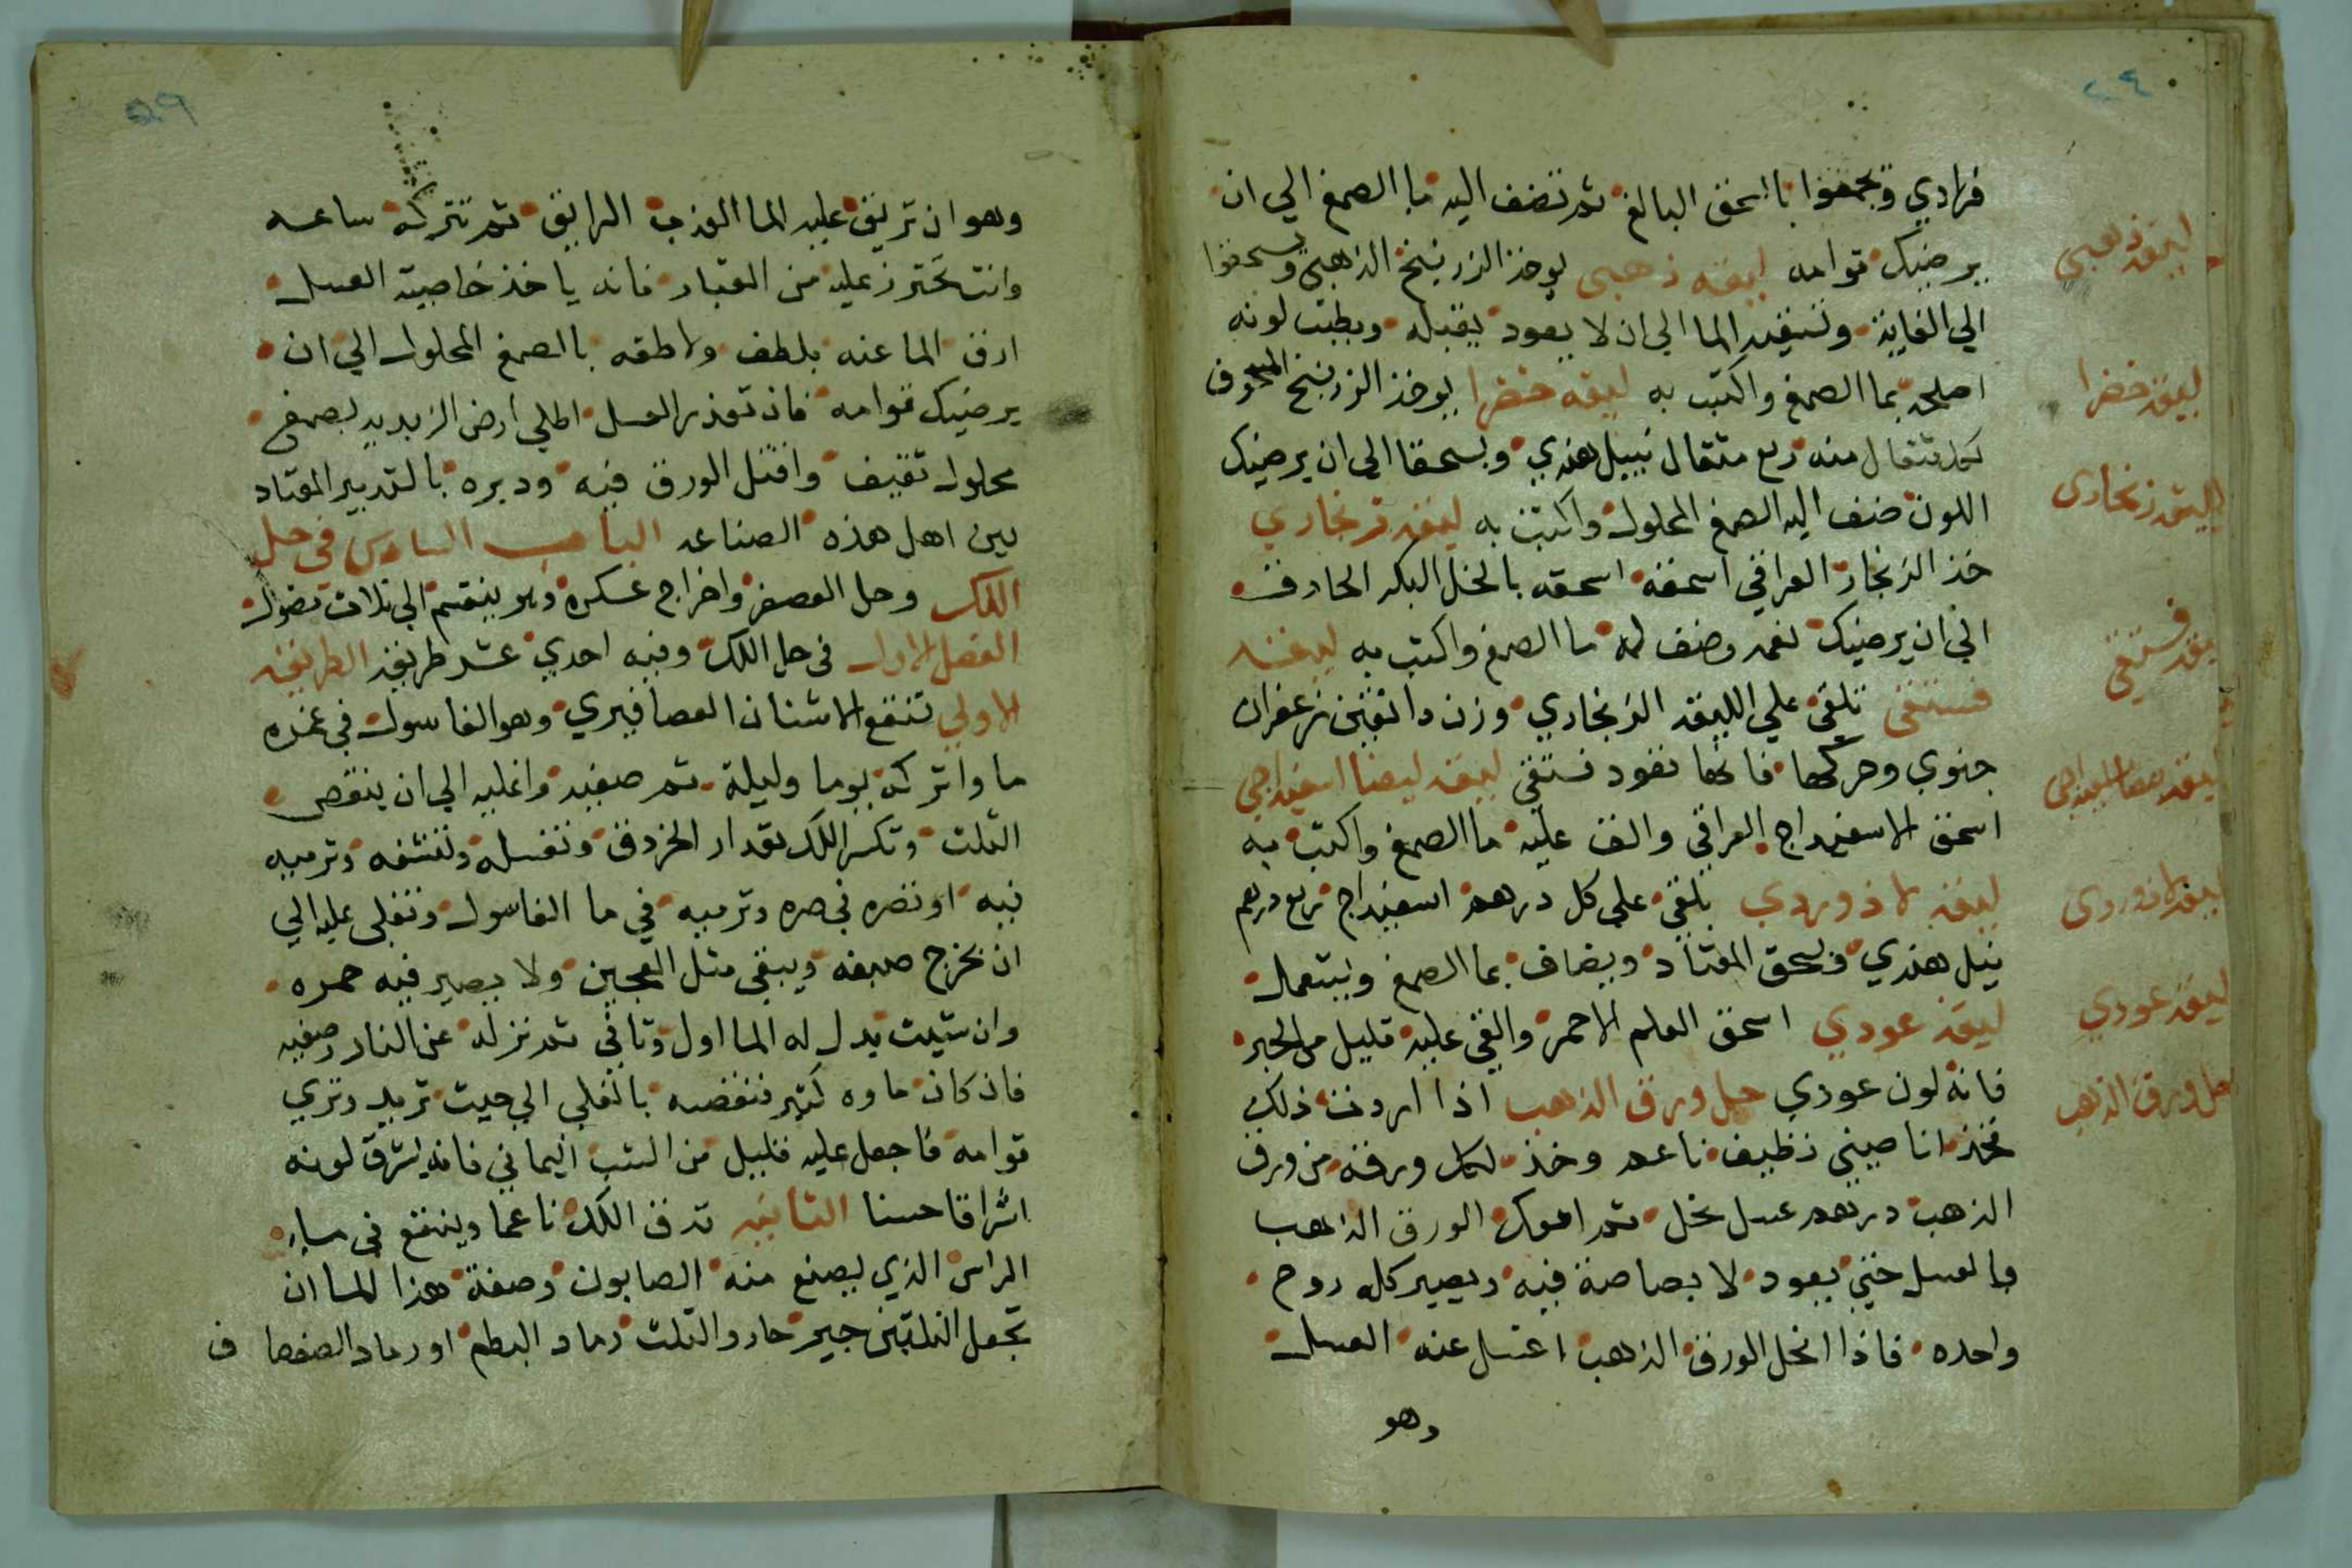 ٢٤
فرادي وتجمعوا باالحق البالغ ثم تضف اليه ما الصمغ الي ان
يرضيك قوامه ليقه ذهبي يوخذ الزرنيخ الذهبي ويسحقوا
الي الغاية وتسقيه الما الي ان لا يعود يقبله ويطيب لونه
اصلحه بما الصمغ واكتب به ليقه خضرا يوخذ الزرنيخ المسحوق
كل مثقال منه ربع مثقال نيل هندي ويسحقا الي ان يرضيك
اللون ضف اليه الصمغ المحلول واكتب به ليقه زنجاري
خذ الزنجار العراقي اسحقه اسحقه بالخل البكر الحادق
الي ان يرضيك نعمه وضف له ما الصمغ واكتب به ليقه
فستقي تلقي علي الليقه الزنجاري وزن دانقين زعفران
جنوي وحركها فانها تعود فستقي ليقه بيضا اسفيداجي
اسحق الاسفيداج العراقي والق عليه ما الصمغ واكتب به
ليقه لاذوردي تلقي علي كل درهم اسفيداج ربع درهم
نيل هندي ويسحق المعتاد ويضاف بما الصمغ ويستعمل
ليقه عودي اسحق العلم الاحمر والقي عليه قليل من الحبر
فانه لون عودي حل ورق الذهب اذا اردت ذلك
فخذ انا صيني نظيف ناعم وخذ لكل ورقه من ورق
الذهب درهم عسل نحل ثم امعك الورق الذهب
والعسل حتي يعود لا بصاصة فيه ويصير كله روح
واحده فاذا انحل الورق الذهب اغتسل عنه العسل
وهو
ليقه ذهبي
ليقه خضرا
ليقه زنجاري
ليقه فستقي
ليقه بيضا اسفيداجي
ليقه لاذوردي
ليقه عودي
حل ورق الذهب
وهو ان تريق عليه الما العذب الرايق ثم تتركه ساعه
وانت تحترز عليه من الغبار فانه ياخذ خاصية العسل
ارق الما عنه بلطف ولاطقه باالصمغ المحلول الي ان
يرضيك قوامه فان تعذر العسل اطلي ارض الزبديه بصمغ
محلول تقيف واقتل الورق فيه ودبره باالتدبير المعتاد
بين اهل هذه الصناعه الباب السادس في حل
اللك وحل العصفر واخراج عسكره وهو ينقسم الي ثلاث فصول
الفصل الاول في حل اللك وفيه احدي عشر طريقه الطريقه
الاولي تنقع الاشنان العصافيري وهو الغاسول في غمره
ما واتركه يوما وليلة ثم صفيه واغليه الي ان ينقص
الثلث وتكسر اللك بقدار الخردق وتغسله وتنشفه وترميه
فيه او تصره في صره وترميه في ما الغاسول وتغلي عليه الي
ان يخرج صبغه ويبقي مثل العجين ولا يصير فيه حمره
وان شيت بدل له الما اول وثاني ثم نزله عن النار وصفيه
فان كان ماوه كثير فنقصه بالغلي الي حيث تريد وتري
قوامه فاجعل عليه قليل من الشب اليماني فانه يشرق لونه
اشراقا حسنا الثانيه تدق اللك ناعما وينقع في ما
الراس الذي يصنع منه الصابون وصفة هذا الما ان
تجعل الثلثين جير حار والثلث رماد البطم او رماد الصفصاف